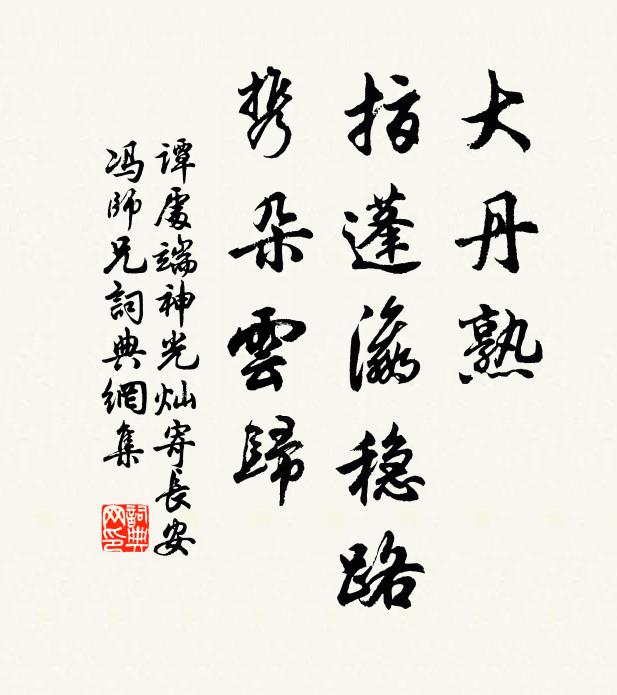 大丹熟
指蓬瀛稳路
携朵雲歸
譚處端神光灿寄長安
冯師兄詞典網集
詞典网印